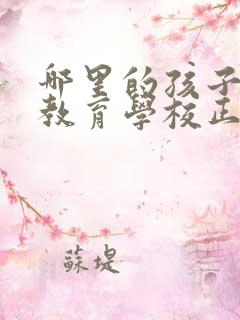 哪里的孩子
教育學校正
蘇堤